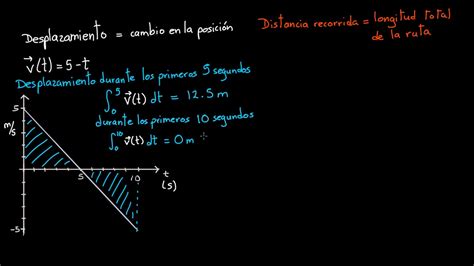 Desplazamiento = cambio en la posición
Distancia recorrida = longitud total
de la ruta
v⃗(t) = 5 - t
Desplazamiento durante los primeros 5 segundos
∫₀⁵ v⃗(t) dt = 12.5 m
durante los primeros 10 segundos
∫₀¹⁰ v⃗(t) dt = 0 m
5
m/s
5
10
t
(s)
-5